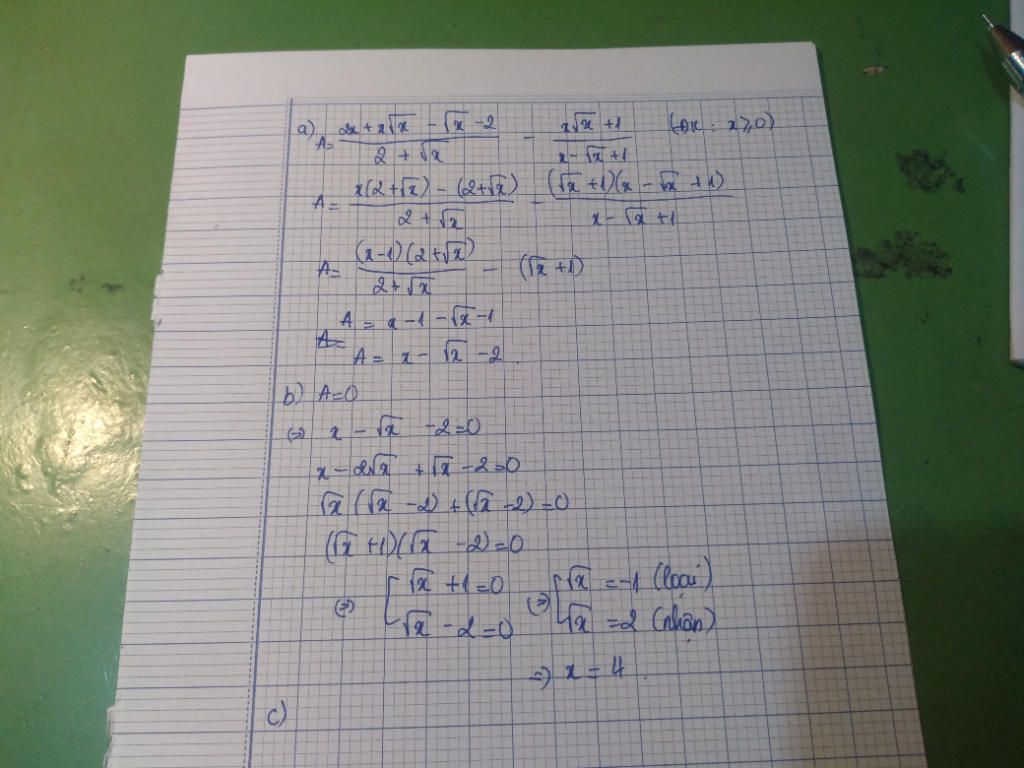 a) A = (2x + x√x - √x - 2)/(2 + √x) - (x√x + 1)/(x - √x + 1) (ĐK : x ⩾ 0)
A = (x(2+√x) - (2+√x))/(2 + √x) - ((√x + 1)(x - √x + 1))/(x - √x + 1)
A = ((x-1)(2+√x))/(2+√x) - (√x + 1)
A = x - 1 - √x - 1
A = x - √x - 2 .
b) A = 0
(=) x - √x - 2 = 0
x - 2√x + √x - 2 = 0
√x (√x - 2) + (√x - 2) = 0
(√x + 1)(√x - 2) = 0
(=) [ √x + 1 = 0 (=) [ √x = -1 (loại)
√x - 2 = 0 √x = 2 (nhận)
=) x = 4 .
c)